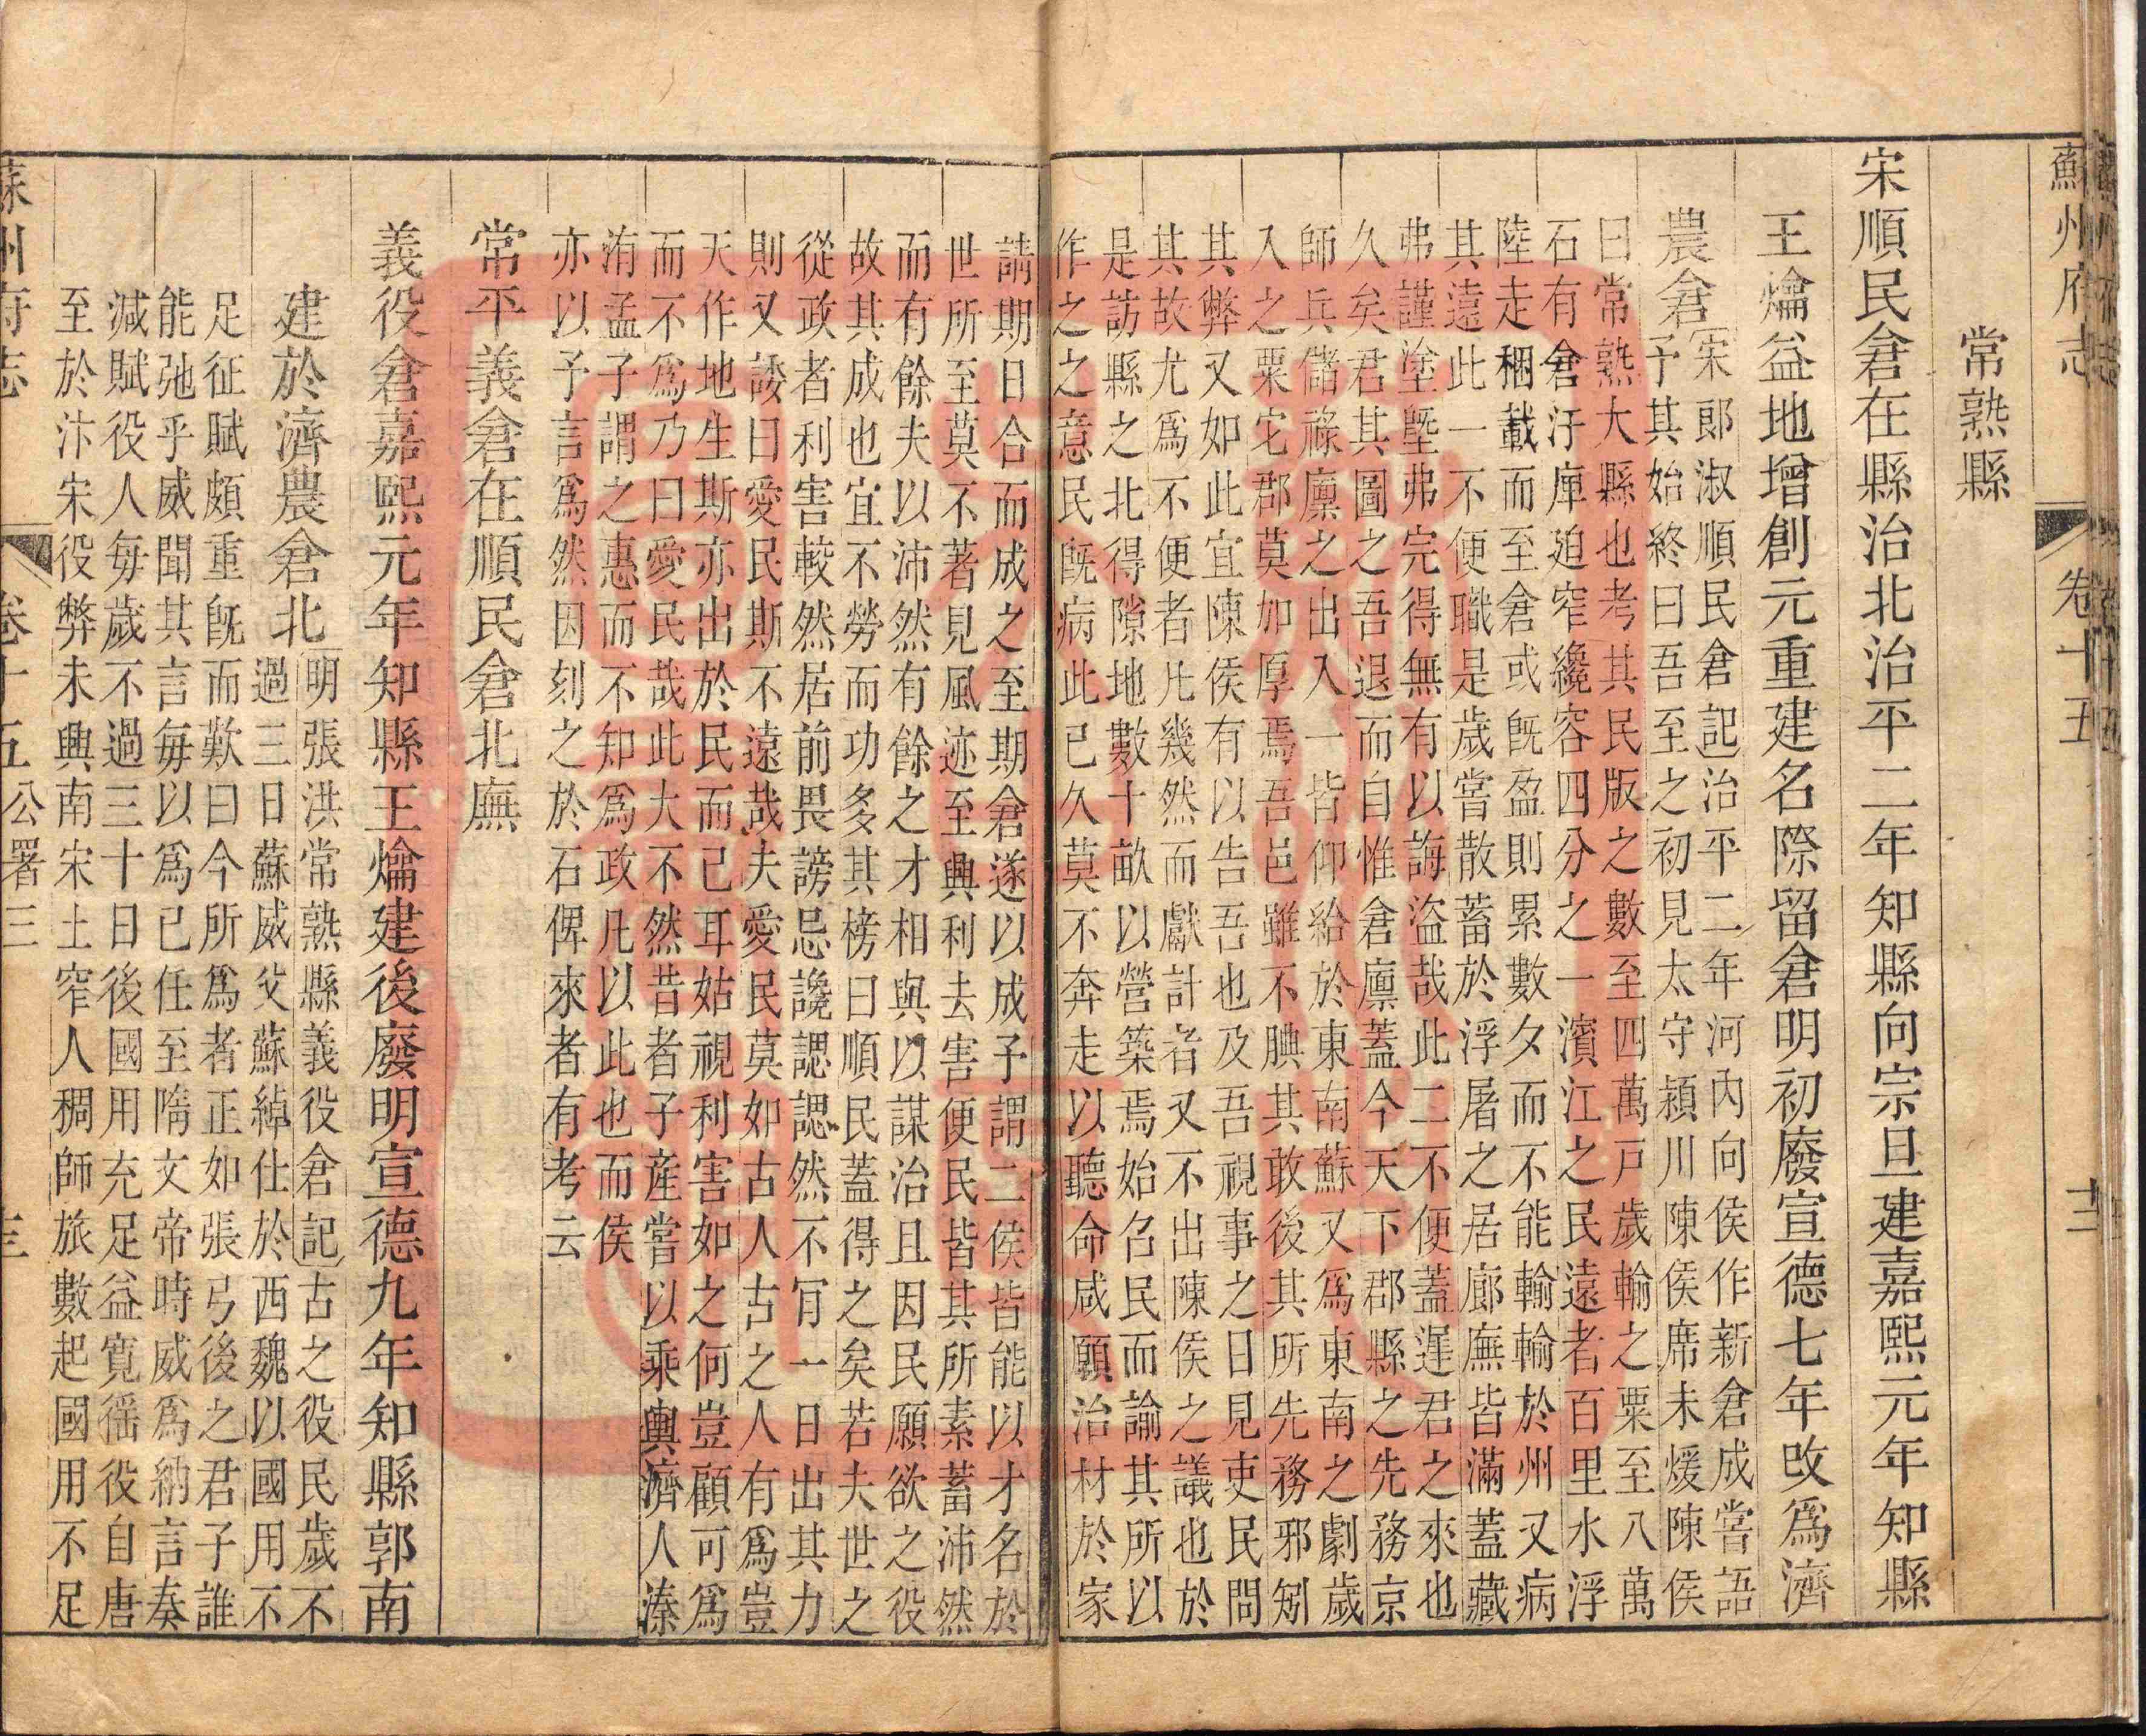 蘇州府志
卷十五
常熟縣
宋順民倉在縣治北治平二年知縣向宗旦建嘉熙元年知縣
王爚益地增創元重建名際留倉明初廢宣德七年改爲濟
農倉
宋郞淑順民倉記治平二年河內向侯作新倉成嘗語
予其始終曰吾至之初見太守潁川陳侯席未煖陳侯
曰常熟大縣也考其民版之數至四萬戸歲輸之粟至八萬
石有倉汙庫廹窄纔容四分之一濱江之民遠者百里水浮
陸走稛載而至倉或旣盈則累數夕而不能輸輸於州又病
其遠此一不便職是歲嘗散蓄於浮屠之居廊廡皆滿蓋藏
弗謹塗墍弗完得無有以誨盜哉此二不便蓋遲君之來也
久矣君其圖之吾退而自惟倉廩蓋今天下郡縣之先務京
師兵儲祿廩之出入一皆仰給於東南蘇又爲東南之劇歲
入之粟它郡莫加厚焉吾邑雖不腆其敢後其所先務邪矧
其弊又如此宜陳侯有以告吾也及吾視事之日見吏民問
其故尤爲不便者凡幾然而獻計者又不出陳侯之議也於
是訪縣之北得隙地數十畝以營築焉始召民而諭其所以
作之之意民旣病此已久莫不奔走以聽命咸願治材於家
請期日合而成之至期倉遂以成予謂二侯皆能以才名於
世所至莫不著見風迹至興利去害便民皆其所素蓄沛然
而有餘夫以沛然有餘之才相與以謀治且因民願欲之役
故其成也宜不勞而功多其榜曰順民蓋得之矣若夫世之
從政者利害較然居前畏謗忌讒諰諰然不肯一日出其力
則又諉曰愛民斯不遠哉夫愛民莫如古人古之人有爲豈
天作地生斯亦出於民而已耳姑視利害如之何豈顧可爲
而不爲乃曰愛民哉此大不然昔者子產嘗以乘輿濟人溱
洧孟子謂之惠而不知爲政凡以此也而侯
亦以予言爲然因刻之於石俾來者有考云
常平義倉在順民倉北廡
義役倉嘉熙元年知縣王爚建後廢明宣德九年知縣郭南
建於濟農倉北
明張洪常熟縣義役倉記古之役民歲不
過三日蘇威父蘇綽仕於西魏以國用不
足征賦頗重旣而歎曰今所爲者正如張弓後之君子誰
能弛乎威聞其言每以爲己任至隋文帝時威爲納言奏
減賦役人每歲不過三十日後國用充足益寬徭役自唐
至於汴宋役弊未興南宋土窄人稠師旅數起國用不足
蘇州府志
卷十五
公署三